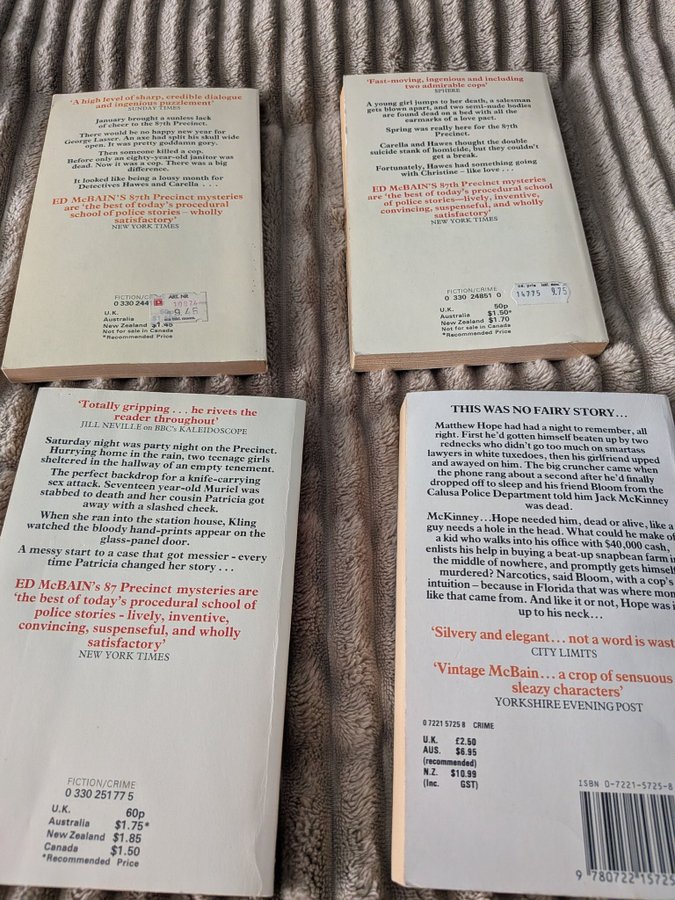 'A high level of sharp, credible dialogue
and ingenious puzzlement'
SUNDAY TIMES
January brought a sunless lack
of cheer to the 87th Precinct.
There would be no happy new year for
George Lasser. An axe had split his skull wide
open. It was pretty goddamn gory.
Then someone killed a cop.
Before only an eighty-year-old janitor was
dead. Now it was a cop. There was a big
difference.
It looked like being a lousy month for
Detectives Hawes and Carella . . .
ED McBAIN'S 87th Precinct mysteries
are 'the best of today's procedural
school of police stories – wholly
satisfactory'
NEW YORK TIMES
FICTION/CRIME
0 330 244
ART. NR.
9.45
U.K.
Australia
New Zealand $1.45
Not for sale in Canada
*Recommended Price
'Fast-moving, ingenious and including
two admirable cops'
SPHERE
A young girl jumps to her death, a salesman
gets blown apart, and two semi-nude bodies
are found dead on a bed with all the
earmarks of a love pact.
Spring was really here for the 87th
Precinct.
Carella and Hawes thought the double
suicide stank of homicide, but they couldn't
get a break.
Fortunately, Hawes had something going
with Christine – like love . . .
ED McBAIN'S 87th Precinct mysteries
are 'the best of today's procedural school
of police stories—lively, inventive,
convincing, suspenseful, and wholly
satisfactory'
NEW YORK TIMES
FICTION/CRIME
0 330 24851 0
14775 9.75
U.K. 50p
Australia $1.50*
New Zealand $1.70
*Recommended Price
'Totally gripping . . . he rivets the
reader throughout'
JILL NEVILLE on BBC's KALEIDOSCOPE
Saturday night was party night on the Precinct.
Hurrying home in the rain, two teenage girls
sheltered in the hallway of an empty tenement.
The perfect backdrop for a knife-carrying
sex attack. Seventeen year-old Muriel was
stabbed to death and her cousin Patricia got
away with a slashed cheek.
When she ran into the station house, Kling
watched the bloody hand-prints appear on the
glass-panel door.
A messy start to a case that got messier - every
time Patricia changed her story . . .
ED McBAIN's 87 Precinct mysteries are
'the best of today's procedural school of
police stories - lively, inventive,
convincing, suspenseful, and wholly
satisfactory'
NEW YORK TIMES
FICTION/CRIME
0 330 25177 5
U.K. 60p
Australia $1.75*
New Zealand $1.85
Canada $1.50
*Recommended Price
THIS WAS NO FAIRY STORY...
Matthew Hope had had a night to remember, all
right. First he'd gotten himself beaten up by two
rednecks who didn't go too much on smartass
lawyers in white tuxedoes, then his girlfriend upped
and awayed on him. The big cruncher came when
the phone rang about a second after he'd finally
dropped off to sleep and his friend Bloom from the
Calusa Police Department told him Jack McKinney
was dead.
McKinney...Hope needed him, dead or alive, like a
guy needs a hole in the head. What could he make of
a kid who walks into his office with $40,000 cash,
enlists his help in buying a beat-up snapbean farm in
the middle of nowhere, and promptly gets himself
murdered? Narcotics, said Bloom, with a cop's
intuition – because in Florida that was where mon
like that came from. And like it or not, Hope was i
up to his neck...
'Silvery and elegant... not a word is wast
CITY LIMITS
'Vintage McBain... a crop of sensuous
sleazy characters'
YORKSHIRE EVENING POST
0 7221 5725 8 CRIME
U.K. £2.50
AUS. $6.95
(recommended)
N.Z. $10.99
(Inc. GST)
ISBN 0-7221-5725-8
9 780722 15725